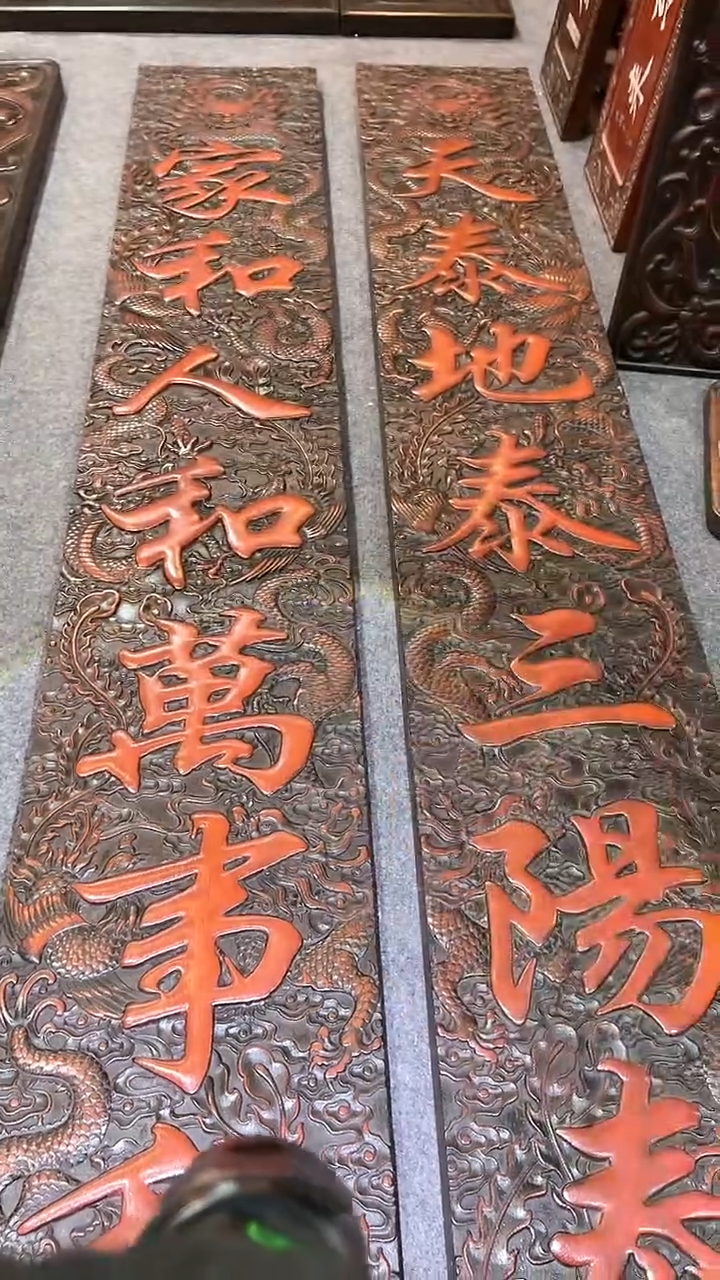 天泰地泰三陽泰
家和人和萬事